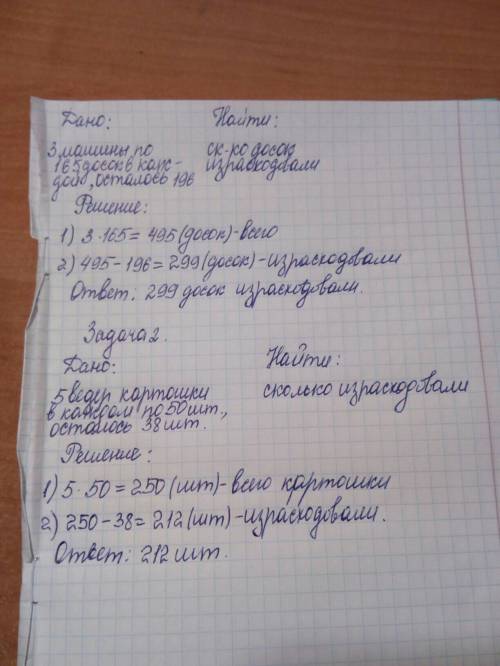 Дано: Найти:
3 машины по ск-ко досок
165 досок в каж- израсходовали
дой, осталось 196
Решение:
1) 3·165 = 495 (досок) - всего
2) 495 - 196 = 299 (досок) - израсходовали
Ответ: 299 досок израсходовали.
Задача 2.
Дано: Найти:
5 ведер картошки сколько израсходовали
в каждом по 50 шт.,
осталось 38 шт.
Решение:
1) 5·50 = 250 (шт) - всего картошки
2) 250 - 38 = 212 (шт) - израсходовали.
Ответ: 212 шт.